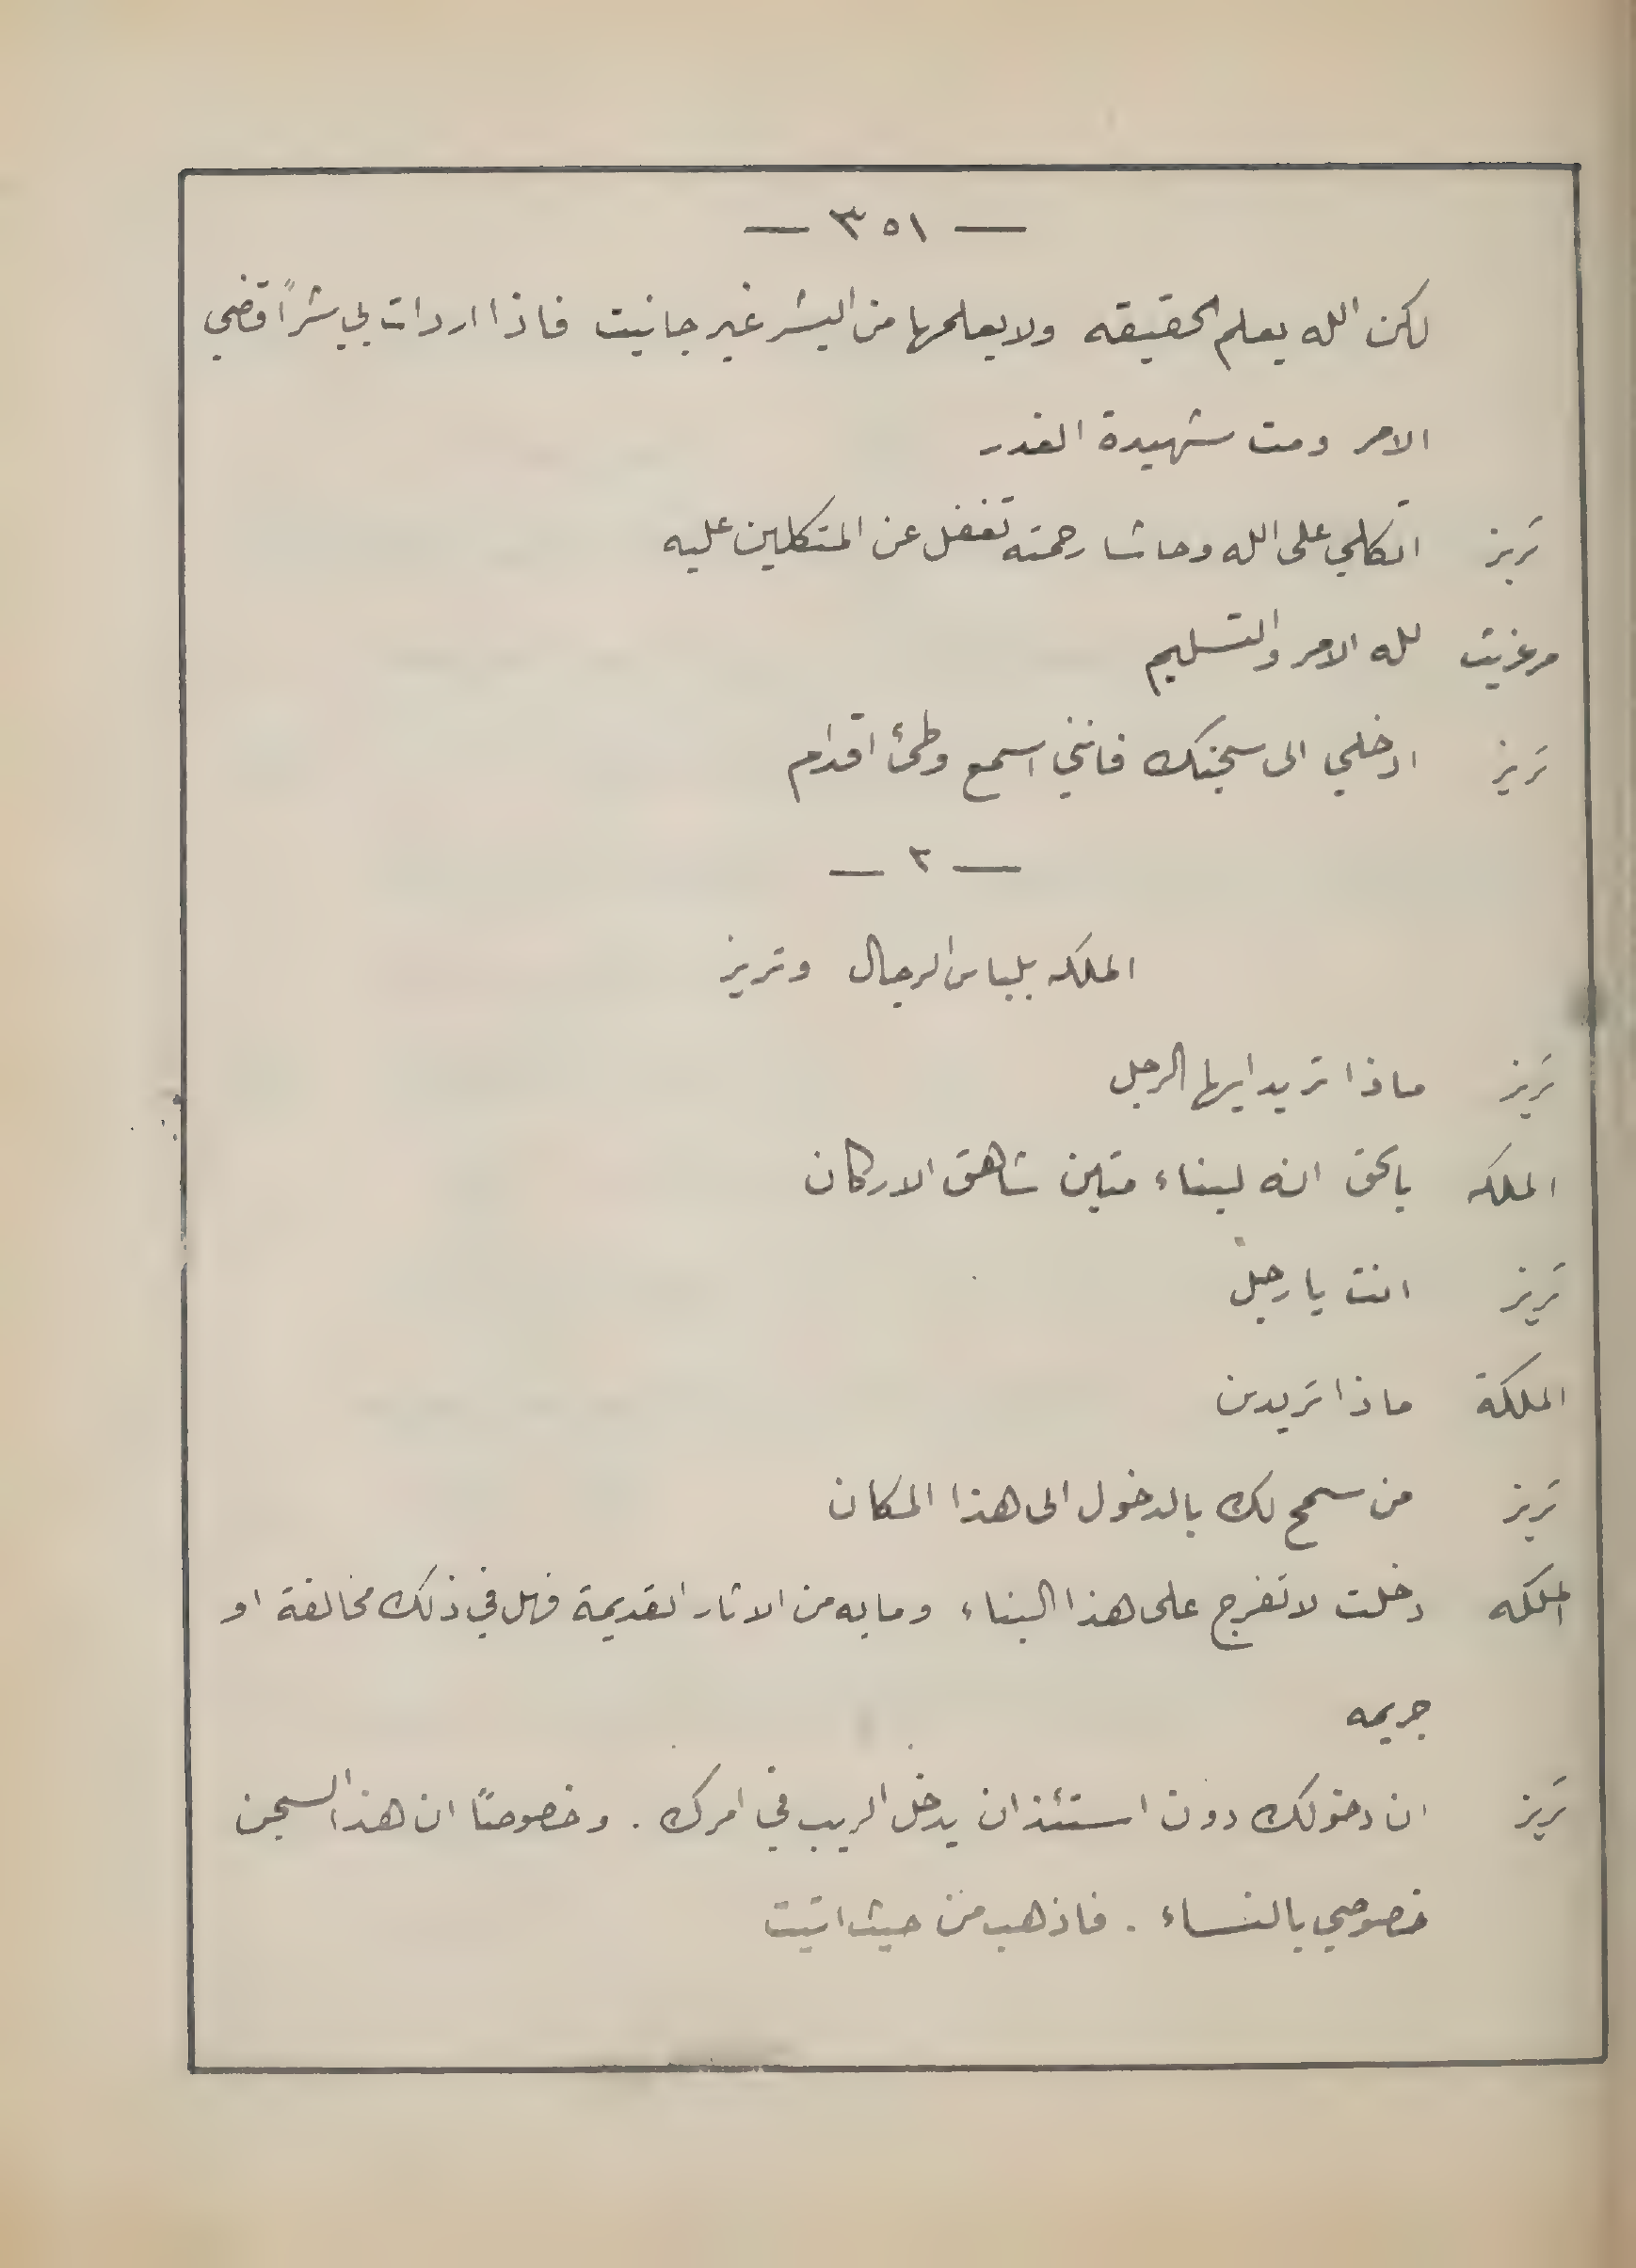 — ٣٥١ —
لكن الله يعلم الحقيقه ولا يعلمها من البشر غير جانيت فاذا ارادت بي شراً قضي
الامر ومت شهيدة الغدر
تريز اتكلي على الله وحاشا رحمته تغفل عن المتكلين عليه
مرغريت لله الامر والتسليم
تريز ادخلي الى سجنك فانني اسمع وطئ اقدام
— ٢ —
الملكه بلباس الرجال وتريز
تريز ماذا تريد ايها الرجل
الملكه بالحق انه لبناء متين شاهق الاركان
تريز انت يا رجل
الملكة ماذا تريدين
تريز من سمح لك بالدخول الى هذا المكان
الملكه دخلت لاتفرج على هذا البناء وما به من الاثار القديمة فهل في ذلك مخالفة او
جريمه
تريز ان دخولك دون استئذان يدخل الريب في امرك . وخصوصًا ان هذا السجن
خصوصي بالنساء . فاذهب من حيث اتيت